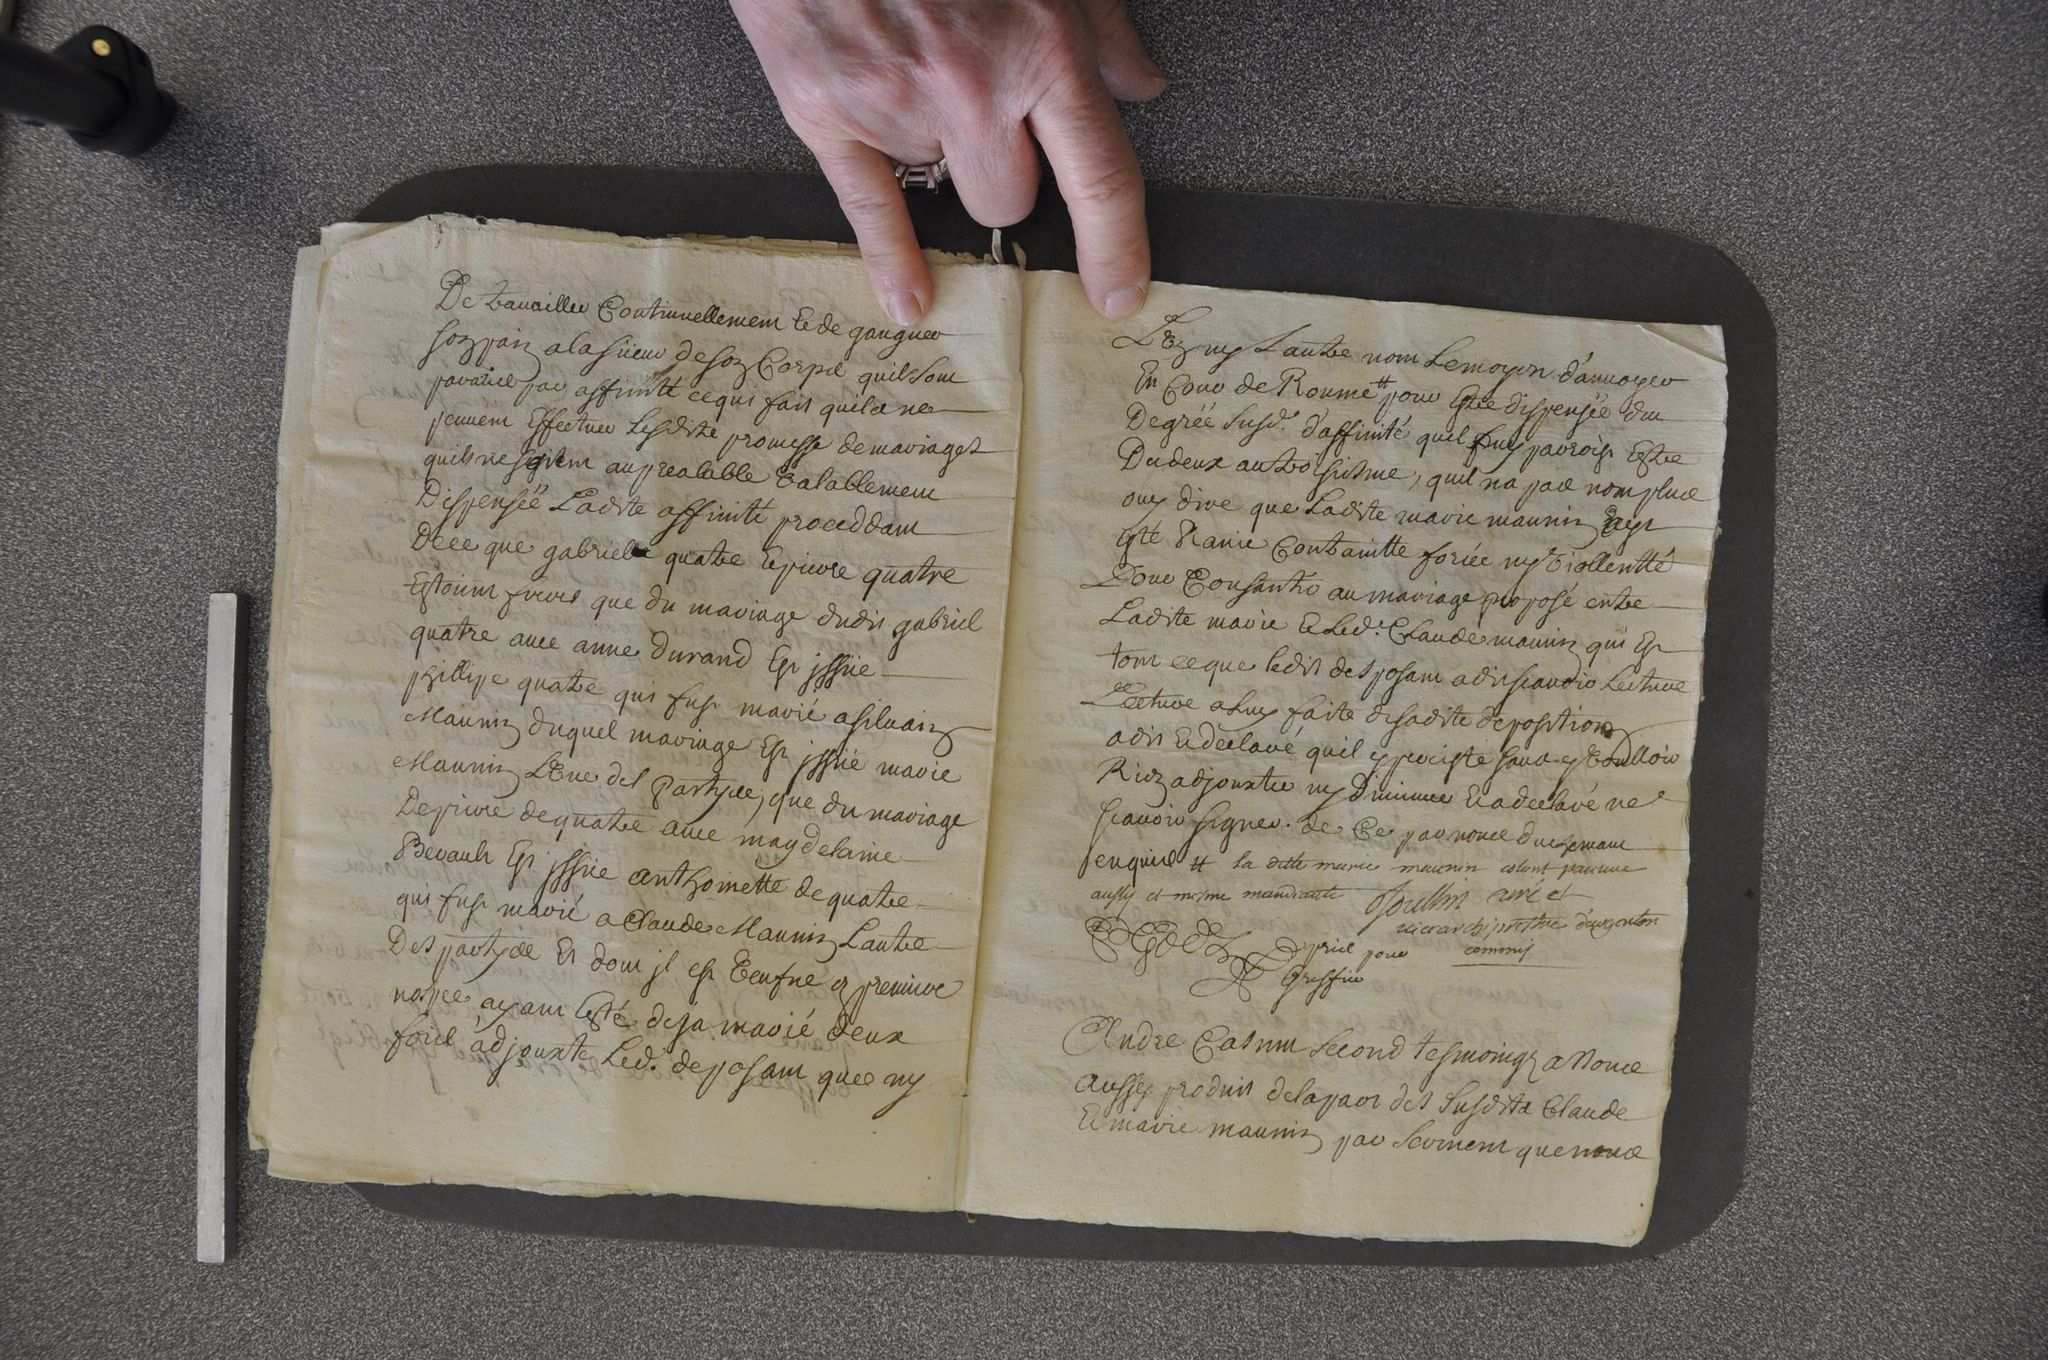 De travailler Continuellement & de gaugner
son pain a la süeur de son Corps quils sont
parants par affinitté ce qui fait quils ne
peuvent Effectuer lesdits promesse de mariages
quils ne soient au prealable Valablement
Dispensée Ladite affinité proceddant
Dece que gabrielle quatre & pierre quatre
Estoint freres que du mariage dudit gabriel
quatre avec anne Durand Est jssüe
phillipe quatre qui fust marié a silvain
Maunin duquel mariage Est jssüe marie
Maunin L'Une des Partyes, que du mariage
De pierre de quatre avec magdelaine
Berault Est jssüe anthoinette de quatre
qui fust marié a Claude Maunin L'autre
Des partyes Et dont jl est Veufue en premiere
nopce ayant Esté deja marié deux
fois adjouxte Led. deposant quee ny
L'Un ny L'autre nont Le moyen d'anuoyer
En Cour de Roume # pour Estre dispensée du
Degrée Susd. d'affinité quil luy paroist Estre
Du deux au troisiesme, quil na pas non plus
ouy dire que Ladite marie maunin ayt
Esté Ravie Contraintte forcée ny Viollentté
Pour Consantir au mariage proposé entre
Ladite marie & Led. Claude maunin qui Est
tout ce que ledit desposant a dit scavoir Lecture
Lecture a Luy faite de sadite deposition
a dit & declaré quil y perciste sans y Voulloir
Rien adjouxter ny Diminuer & a declaré ne
scavoir signer. de Ce par nous duemant
enquis # la ditte marie maunin estant pauvre
aussy et mesme mandiante
curé et
vicearchiprestre d'argenton
commis
pour
Greffier
Andre second tesmoingt a Nous
aussy produit de la part des Susdits Claude
& marie maunin par serment que nous